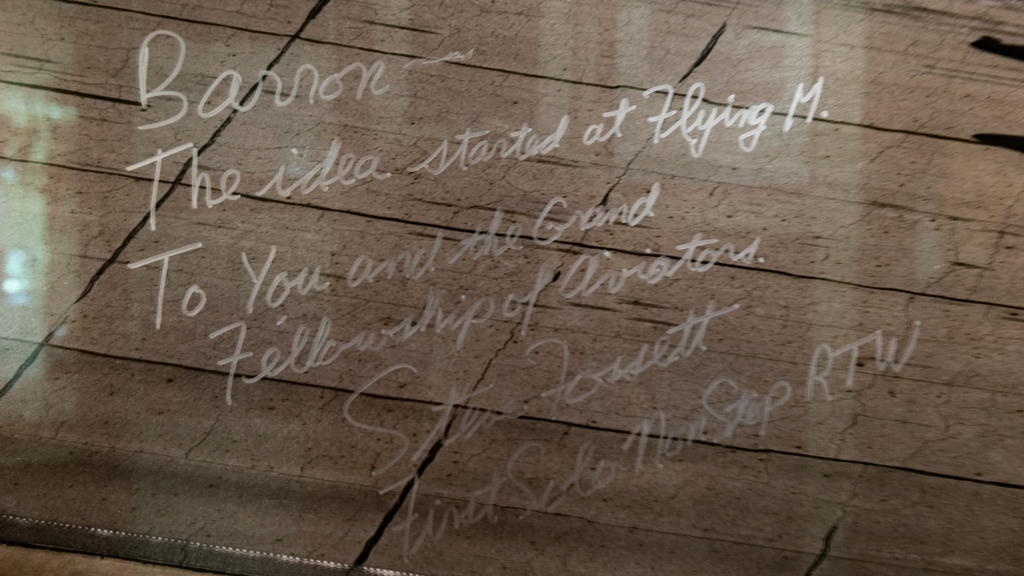 Barron —
The idea started at Flying M.
To You and the Grand
Fellowship of Aviators.
Steve Fossett
First Solo NonStop RTW